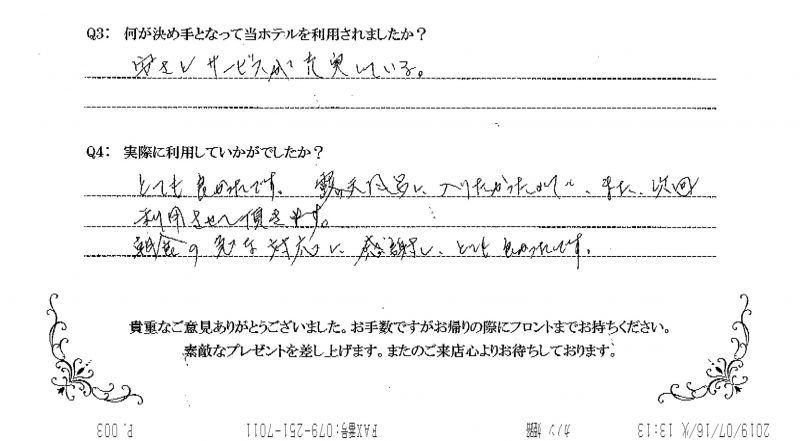 Q3: 何が決め手となって当ホテルを利用されましたか?
安さとサービスが充実している。
Q4: 実際に利用していかがでしたか?
とても良かったです。露天風呂に入りたかったので、また、次回
利用させて頂きます。
の急な対応に、感謝し、とても良かったです。
貴重なご意見ありがとうございました。お手数ですがお帰りの際にフロントまでお持ちください。
素敵なプレゼントを差し上げます。またのご来店心よりお待ちしております。
2019/07/16/火 13:13 カノン 姫路 FAX番号:079-251-7011 P. 003